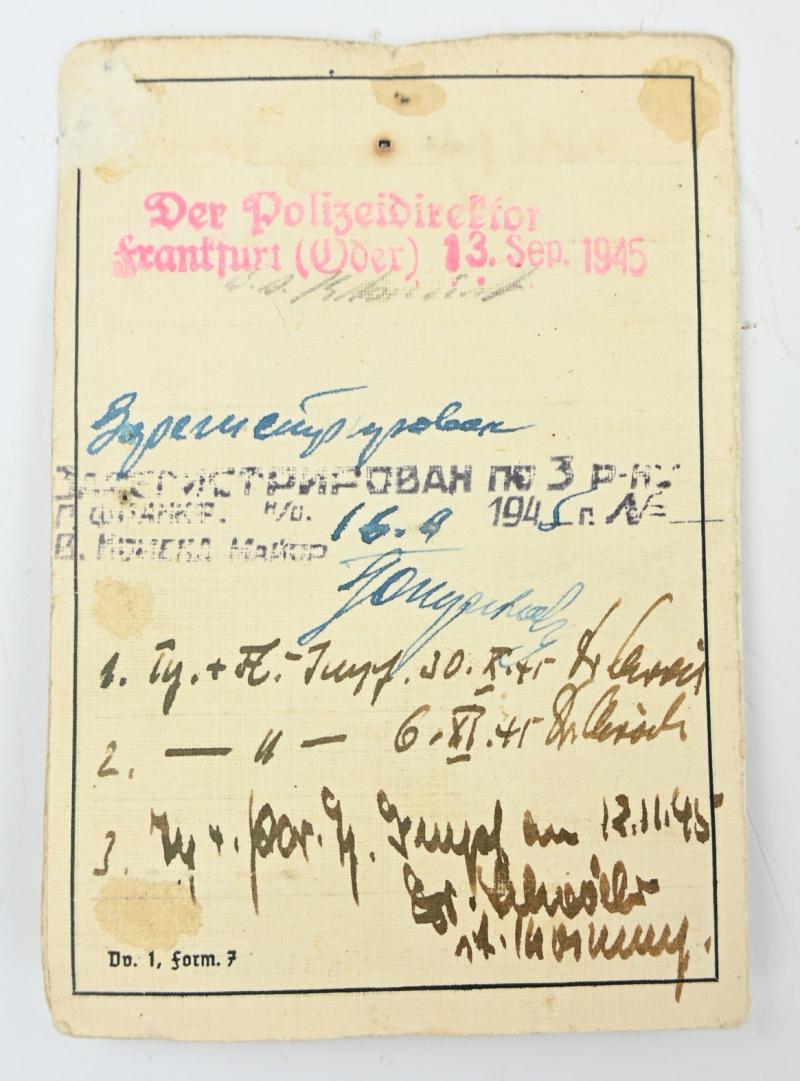 Der Polizeidirektor
Frankfurt (Oder) 13. Sep. 1945
Зарегистрирован
ЗАРЕГИСТРИРОВАН ПО 3 Р-НУ
Г. ФРАНКФ. н/о. 16.9 1945 г. №
В. КОМЕНД МАЙОР
1. Ty. + - Impf. 30.X.45 Dr.
2. — " — 6.XI.45 Dr.
3. Ty + par. Ty. Impf am 12.11.45
Dr.
Dv. 1, Form. 7